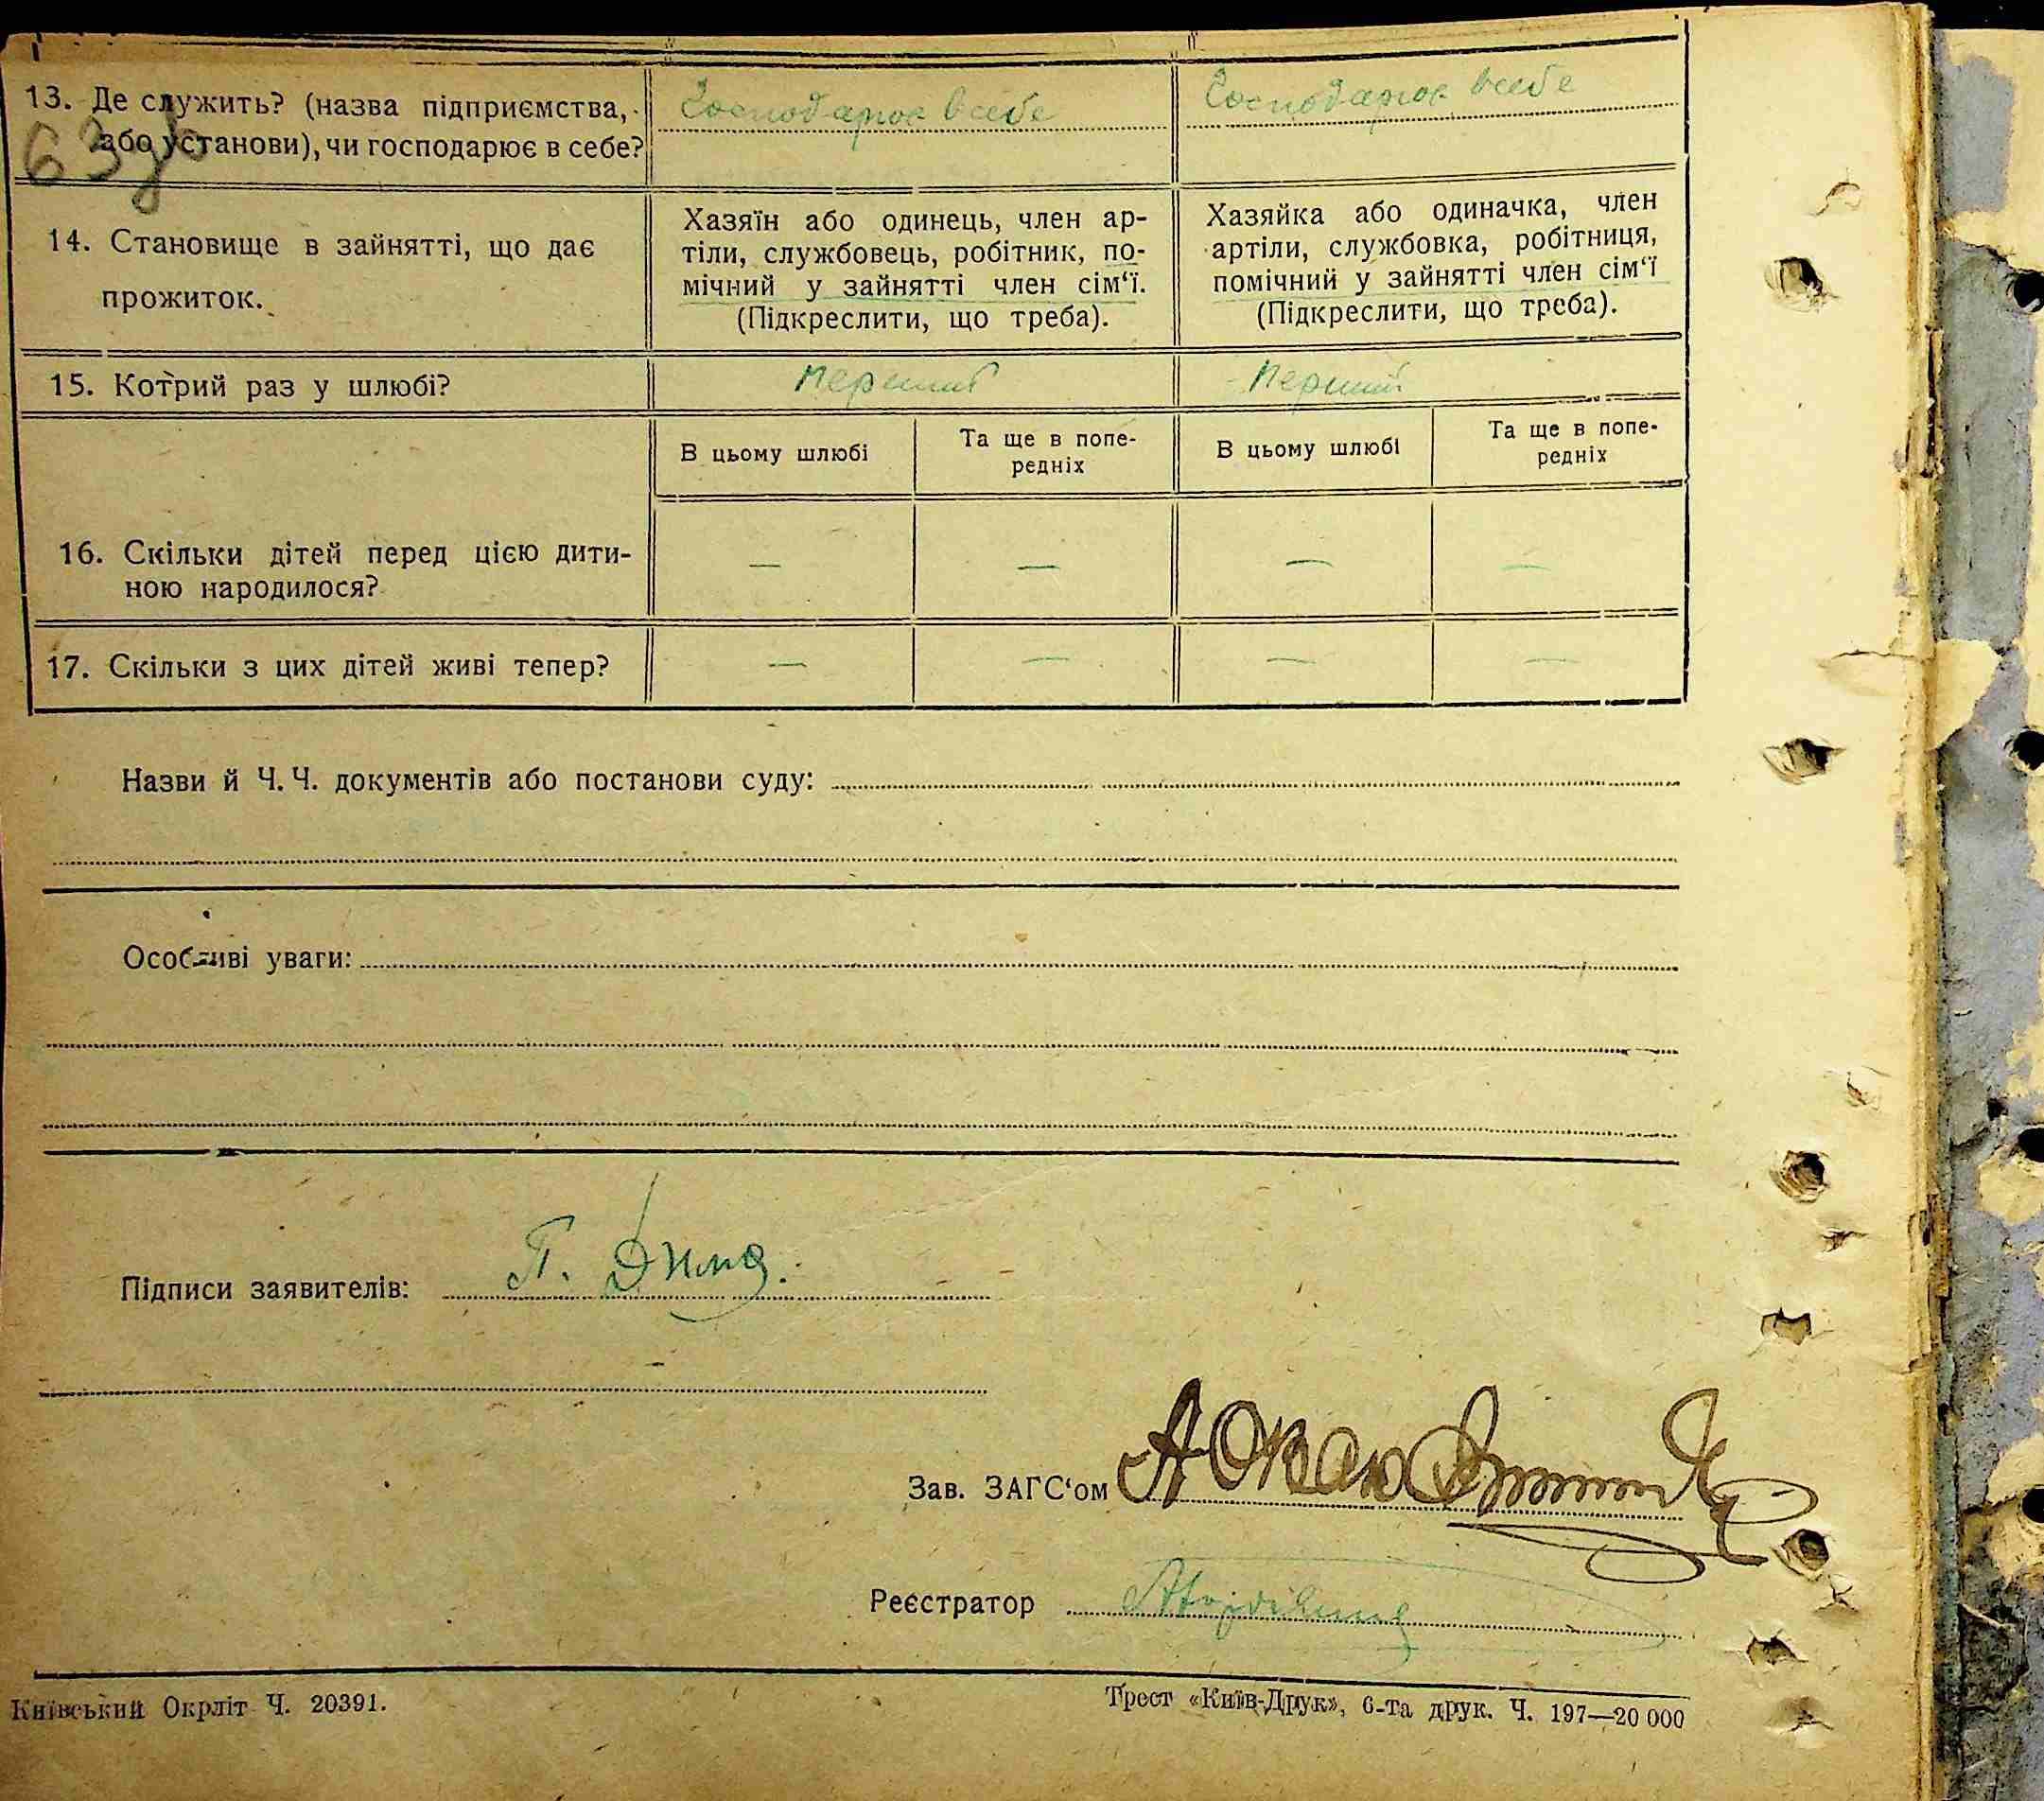 13. Де служить? (назва підприємства, Господарює в себе Господарює в себе
або установи), чи господарює в себе?
63
14. Становище в зайнятті, що дає прожиток.
Хазяїн або одинець, член ар-
тіли, службовець, робітник, по-
мічний у зайнятті член сім‘ї.
(Підкреслити, що треба).
Хазяйка або одиначка, член
артіли, службовка, робітниця,
помічний у зайнятті член сім‘ї
(Підкреслити, що треба).
15. Котрий раз у шлюбі? Перший Перший
В цьому шлюбі
Та ще в попе-
редніх
В цьому шлюбі
Та ще в попе-
редніх
16. Скільки дітей перед цією дити- — — — —
ною народилося?
17. Скільки з цих дітей живі тепер? — — — —
Назви й Ч. Ч. документів або постанови суду:
Особливі уваги:
Підписи заявителів: П.
Зав. ЗАГС‘ом
Реєстратор
Київський Окрліт Ч. 20391.
Трест «Київ-Друк», 6-та друк. Ч. 197—20 000